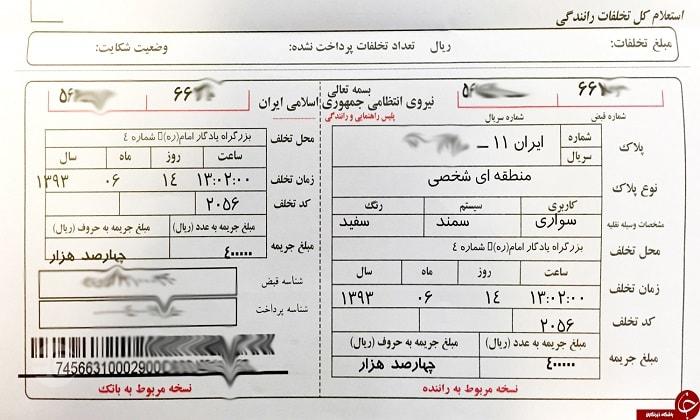 استعلام کل تخلفات رانندگی
مبلغ تخلفات: ریال تعداد تخلفات پرداخت نشده: وضعیت شکایت:
بسمه تعالی
نیروی انتظامی جمهوری اسلامی ایران
پلیس راهنمایی و رانندگی
۶۶
شماره قبض
شماره سریال
پلاک
شماره
سریال
ایران ۱۱ ــ
نوع پلاک
منطقه ای شخصی
مشخصات وسیله نقلیه
کاربری سیستم رنگ
سواری سمند سفید
محل تخلف
بزرگراه یادگار امام(ره)▯ شماره ٤
زمان تخلف
ساعت روز ماه سال
۱۳:۰۲:۰۰ ۱۴ ۰۶ ۱۳۹۳
کد تخلف
۲۰۵۶
مبلغ جریمه
مبلغ جریمه به عدد (ریال) مبلغ جریمه به حروف (ریال)
۴۰۰۰۰۰ چهارصد هزار
نسخه مربوط به راننده
۶۶
محل تخلف
بزرگراه یادگار امام(ره)▯ شماره ٤
زمان تخلف
ساعت روز ماه سال
۱۳:۰۲:۰۰ ۱۴ ۰۶ ۱۳۹۳
کد تخلف
۲۰۵۶
مبلغ جریمه
مبلغ جریمه به عدد (ریال) مبلغ جریمه به حروف (ریال)
۴۰۰۰۰۰ چهارصد هزار
شناسه قبض
شناسه پرداخت
74566310002900
نسخه مربوط به بانک
باشگاه خبرنگاران